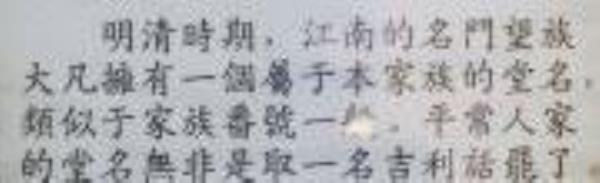 明清時期，江南的名門望族
大凡擁有一個屬于本家族的堂名，
類似于家族番號一。平常人家
的堂名無非是取一名吉利話罷了